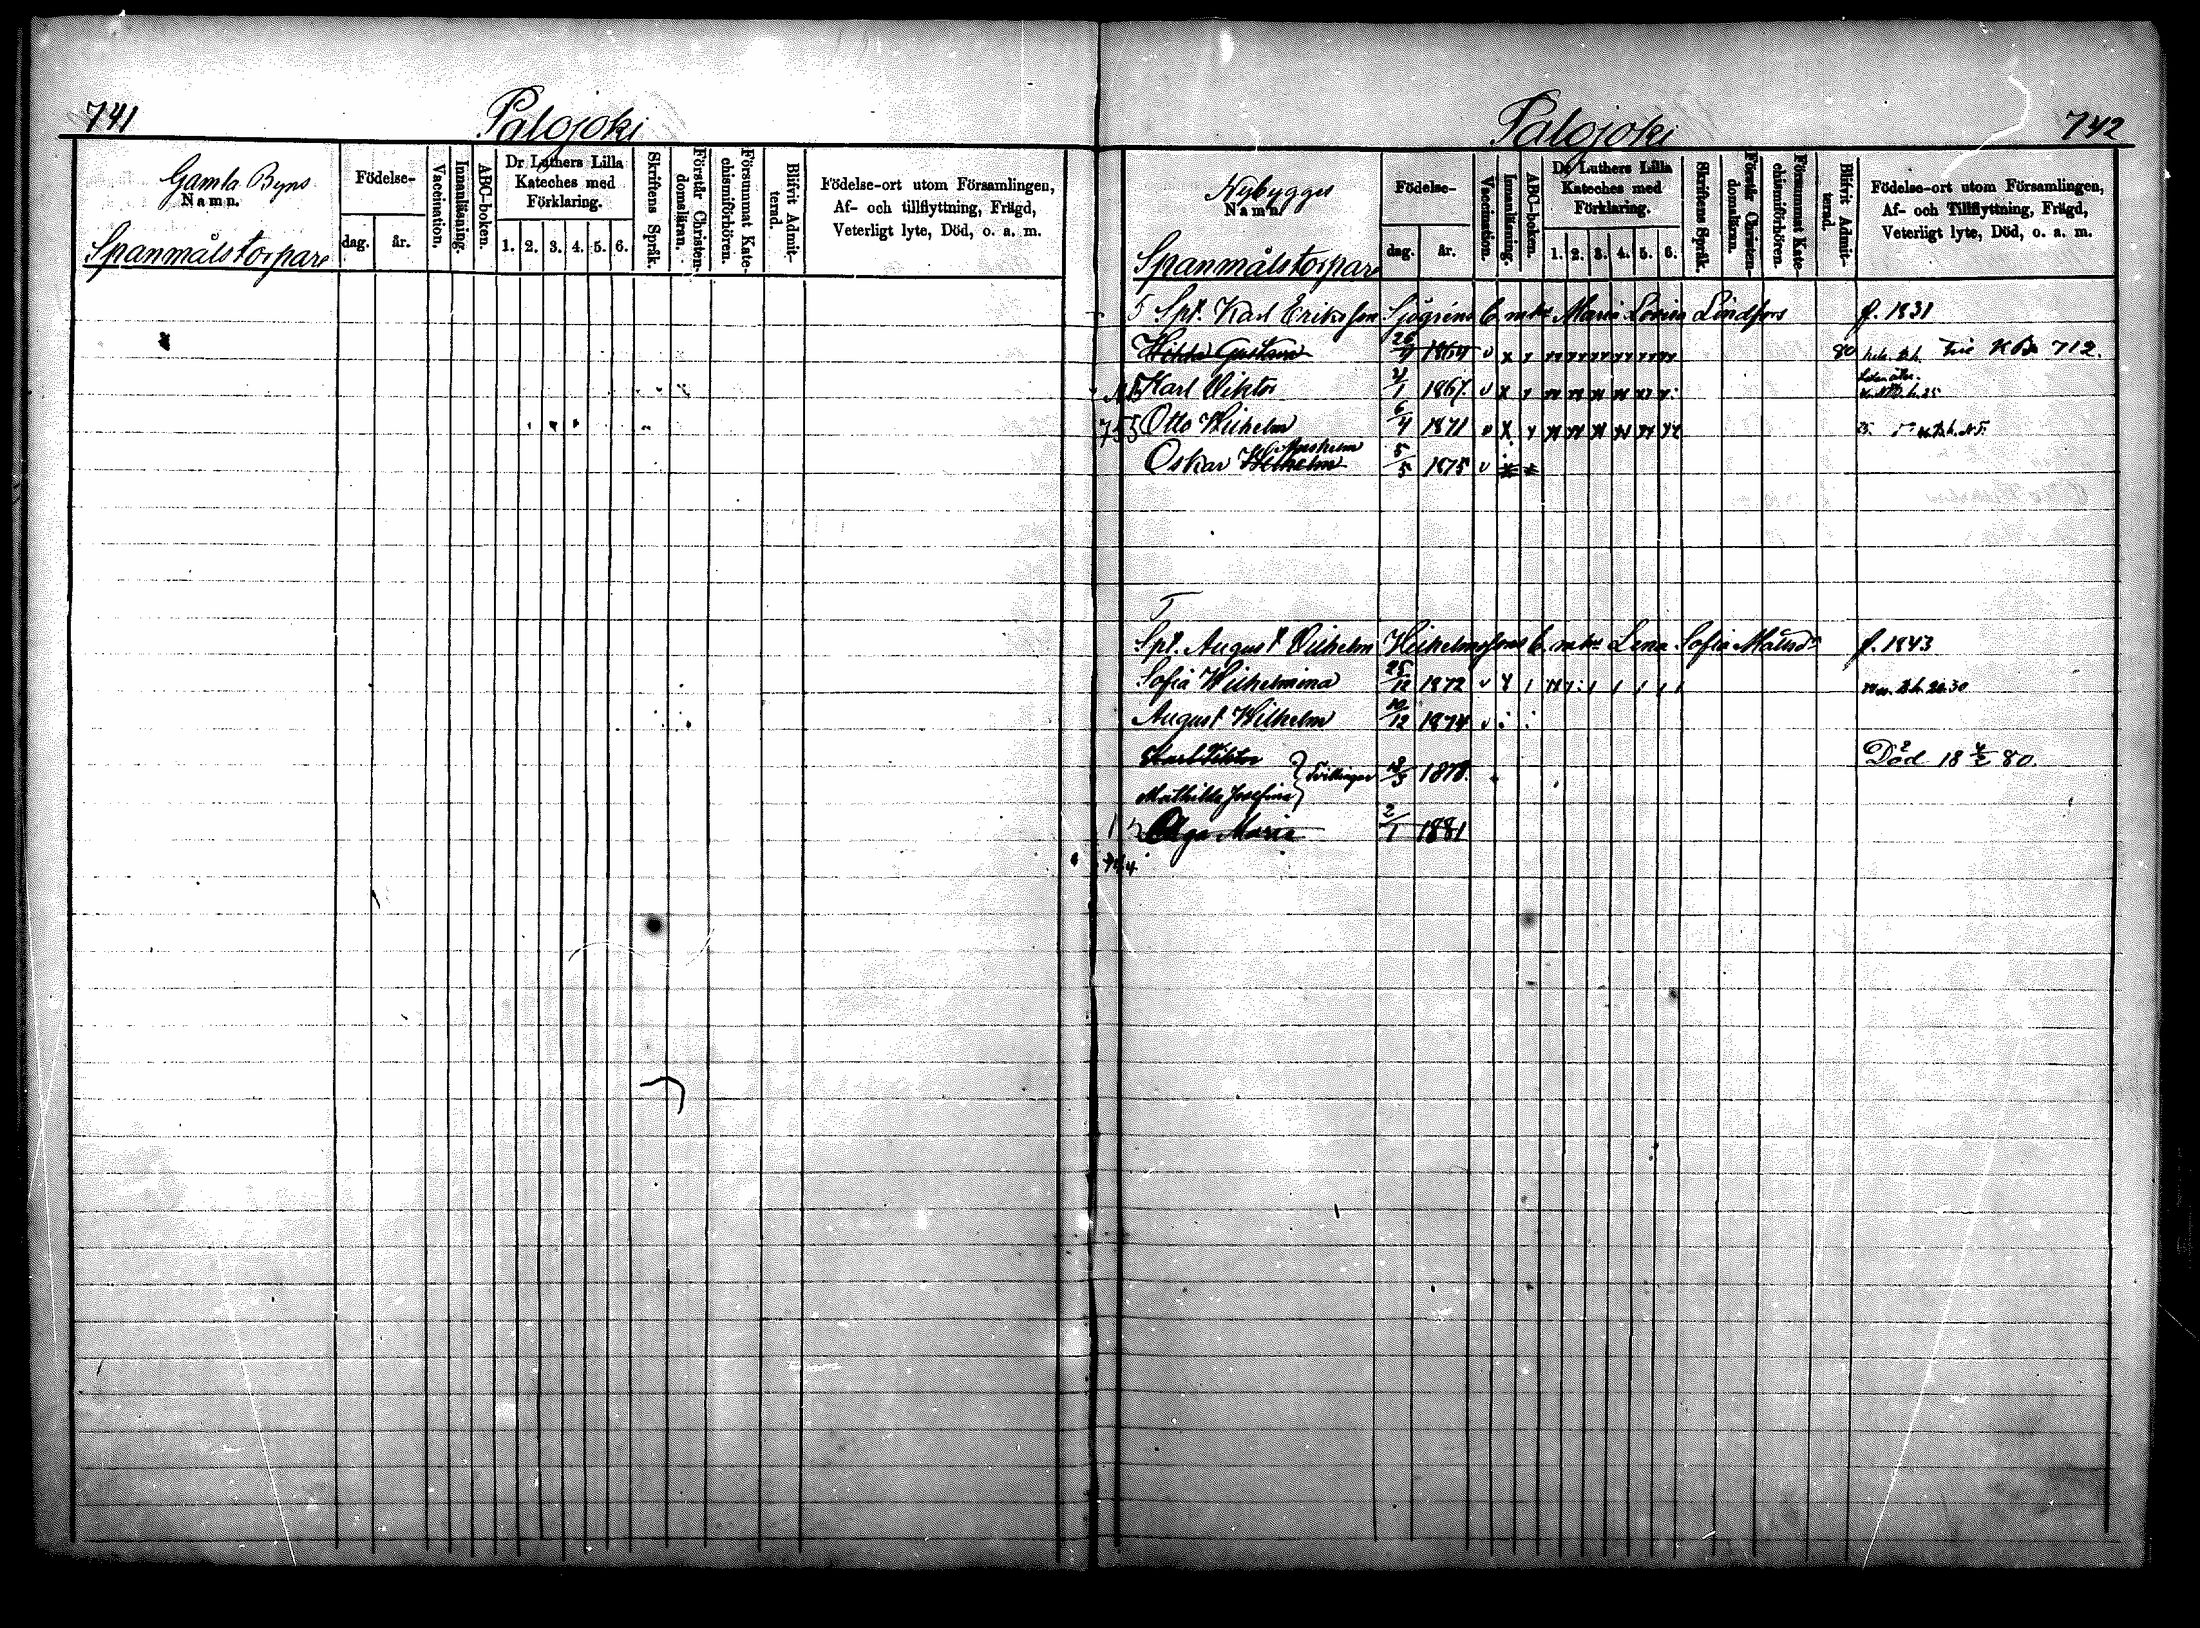 741
Palojoki
Gamla Byns
Namn.
Spanmålstorpare
Födelse-
dag. år.
Vaccination.
Innanläsning.
ABC-boken.
Dr Luthers Lilla
Kateches med
Förklaring.
1. 2. 3. 4. 5. 6.
Skriftens Språk.
Förstår Christen-
domsläran.
Försummat Kate-
chismiförhören.
Blifvit Admit-
terad.
Födelse-ort utom Församlingen,
Af- och tillflyttning, Frägd,
Veterligt lyte, Död, o. a. m.
Palojoki
742
Nybygges
Namn.
Spanmålstorpare
Födelse-
dag. år.
Vaccination.
Innanläsning.
ABC-boken.
Dr Luthers Lilla
Kateches med
Förklaring.
1. 2. 3. 4. 5. 6.
Skriftens Språk.
Förstår Christen-
domsläran.
Försummat Kate-
chismiförhören.
Blifvit Admit-
terad.
Födelse-ort utom Församlingen,
Af- och Tillflyttning, Frägd,
Veterligt lyte, Död, o. a. m.
5 Spt. Karl Eriksson Sjögrens b. m. h. Maria Lovisa Lindfors f. 1831
Hilda Gustava 26/4 1864 80 K B 712.
Karl Viktor 4/1 1867.
755 Otto Wilhelm 6/4 1871
Oskar Wilhelm Anshelm 5/5 1875
Spt. August Vilhelm Wilhelmssons b. m. h. Lena Sofia Matsdr f. 1843
Sofia Wilhelmina 25/12 1872
August Wilhelm 10/12 1874
Karl Viktor
Tvillingar 18/3 1878. Död 18 80.
Mathilda Josefina
Olga Maria 2/1 1881